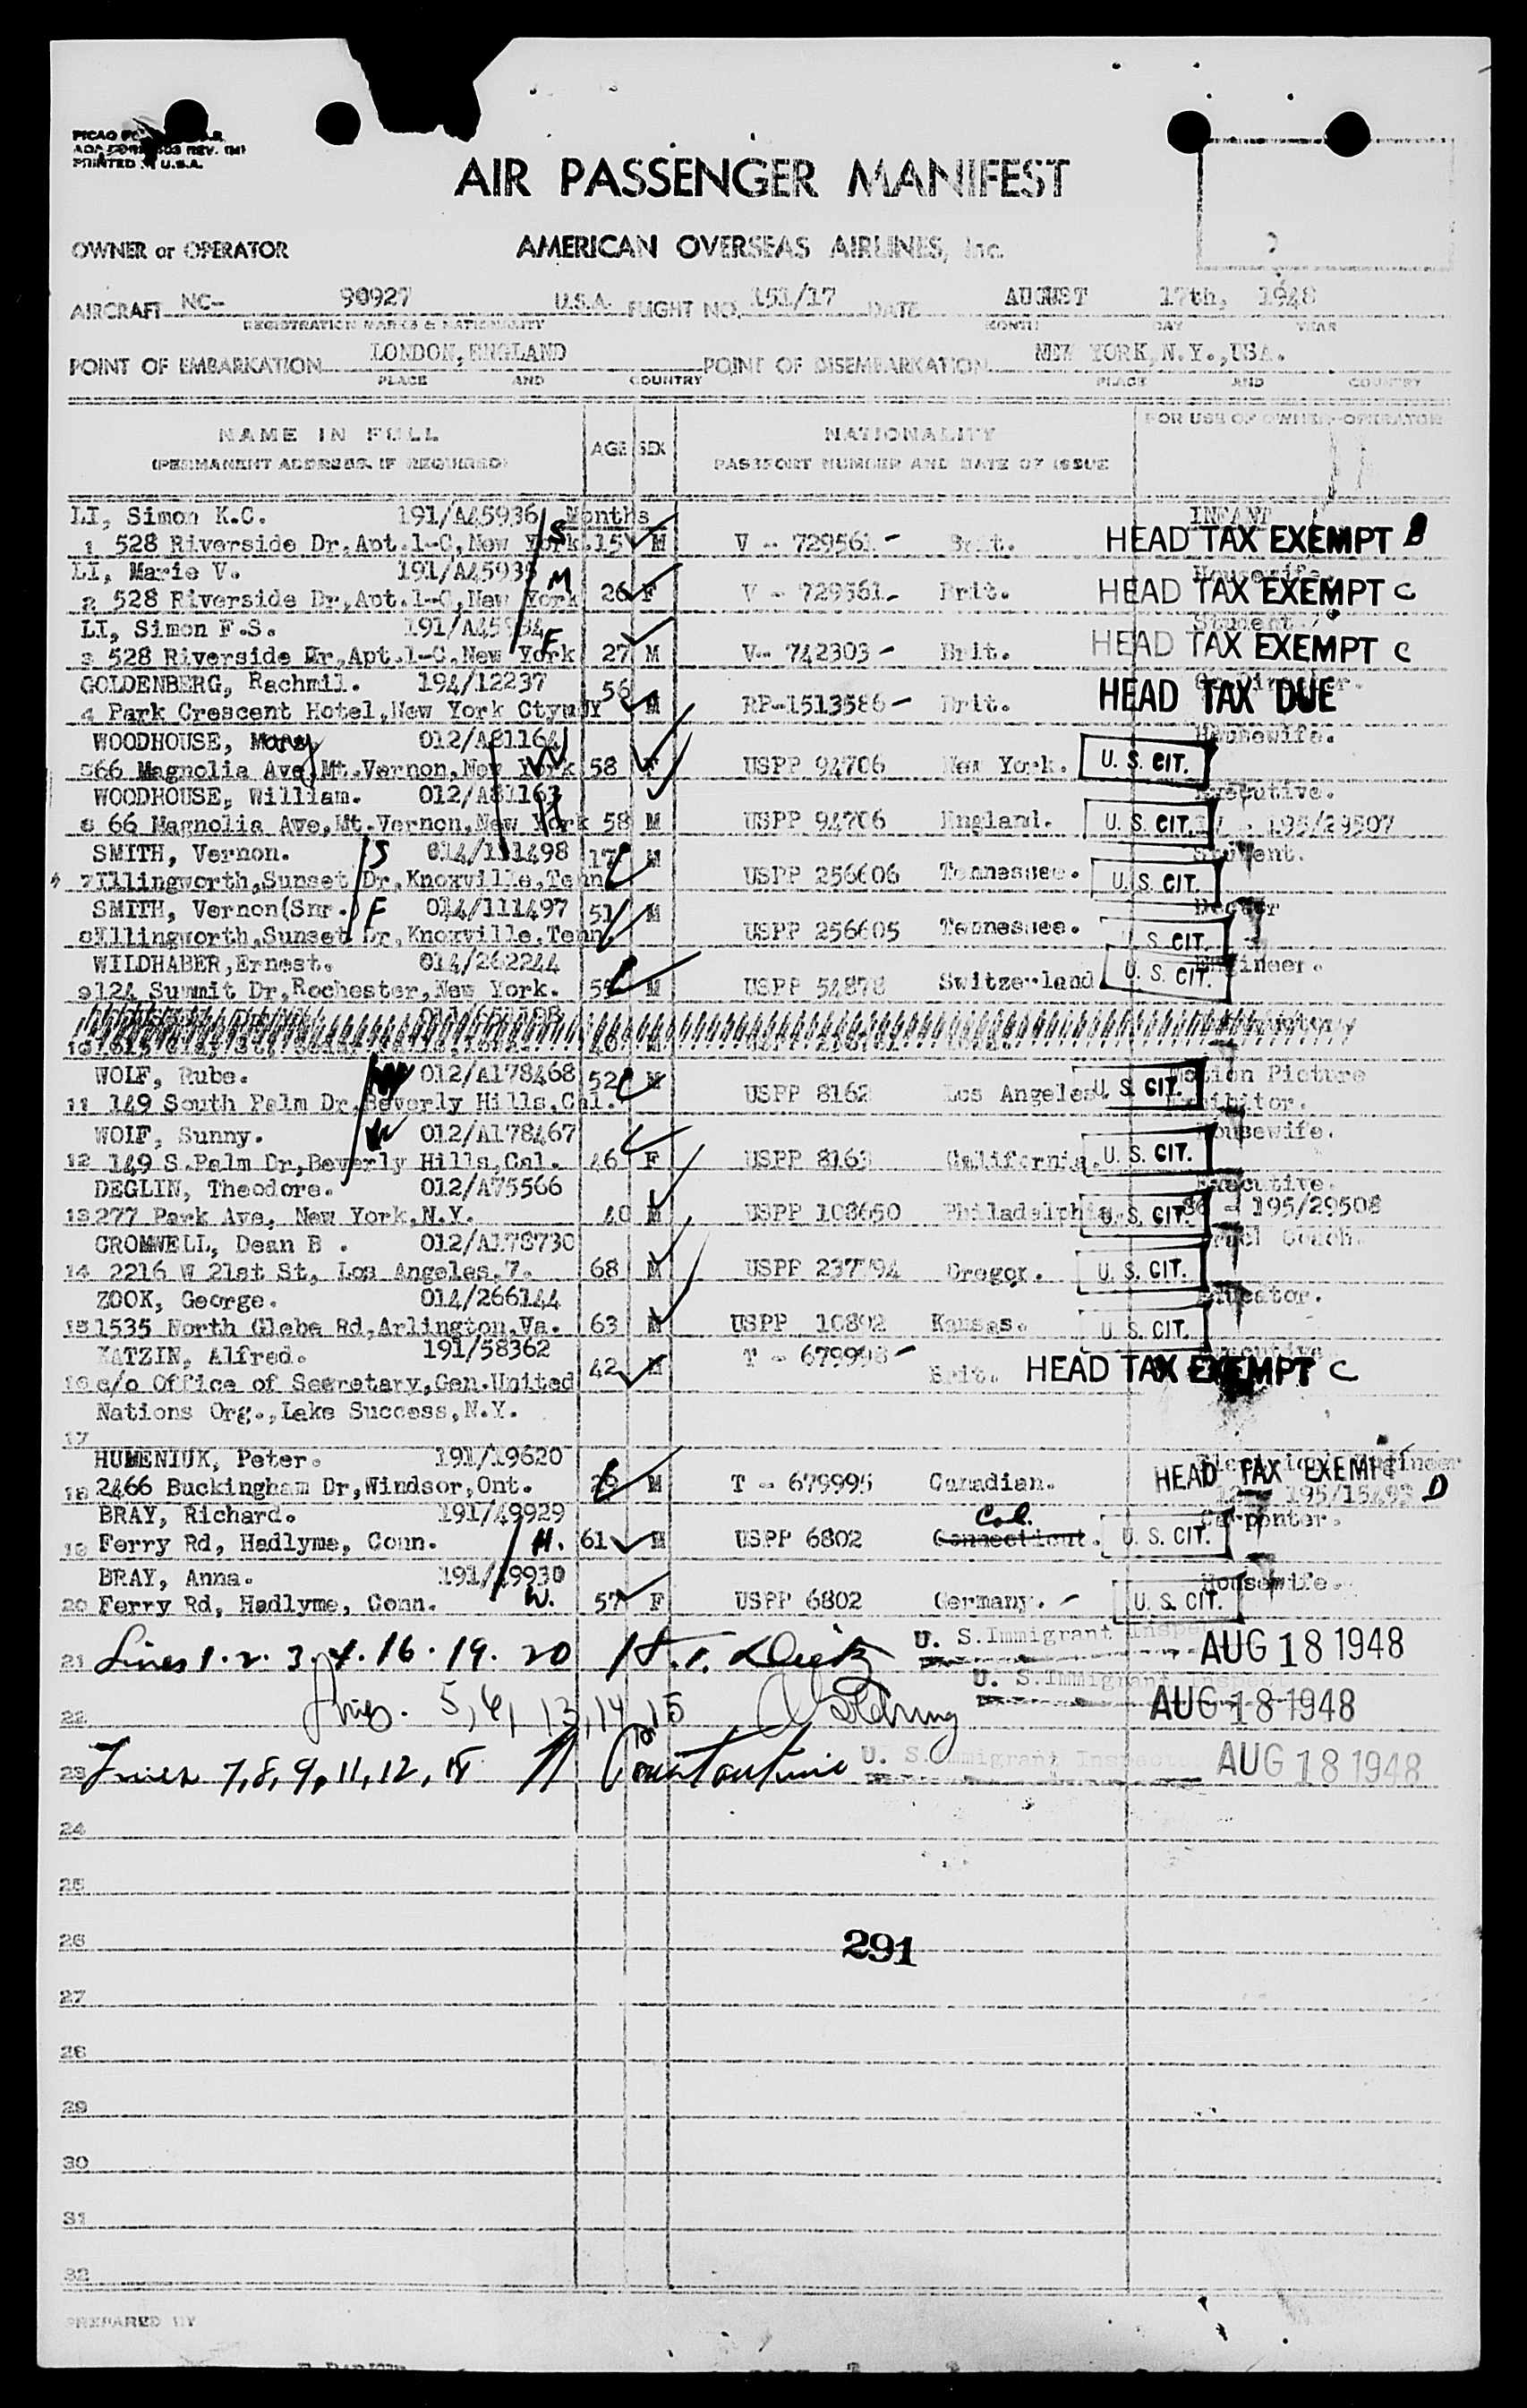 PRINTED IN U.S.A.
AIR PASSENGER MANIFEST
OWNER or OPERATOR AMERICAN OVERSEAS AIRLINES, Inc.
AIRCRAFT NC- 90927 U.S.A. FLIGHT NO. 151/17 DATE AUGUST 17th, 1948
REGISTRATION MARKS & NATIONALITY MONTH DAY YEAR
POINT OF EMBARKATION LONDON, ENGLAND POINT OF DISEMBARKATION NEW YORK, N.Y.,USA.
PLACE AND COUNTRY PLACE AND COUNTRY
NAME IN FULL AGE SEX NATIONALITY FOR USE OF OWNER-OPERATOR
(PERMANENT ADDRESS, IF REQUIRED) PASSPORT NUMBER AND DATE OF ISSUE
LI, Simon K.C. 191/A45936 Months INFANT
1 528 Riverside Dr,Apt.1-C,New York. 15 M V - 729561 - Brit. HEAD TAX EXEMPT B
S
LI, Marie V. Housewife.
2 528 Riverside Dr,Apt.1-C,New York 26 F V - 729561 - Brit. HEAD TAX EXEMPT C
M
LI, Simon F.S. Student.
3 528 Riverside Dr,Apt.1-C,New York 27 M V- 742303 - Brit. HEAD TAX EXEMPT C
F
GOLDENBERG, Rachmil. 194/12237 56
4 Park Crescent Hotel,New York Cty NY M RP-1513586 - Brit. HEAD TAX DUE
WOODHOUSE, Mary 012/A81164 Housewife.
5 66 Magnolia Ave,Mt.Vernon,New York 58 F USPP 94706 New York. U. S. CIT.
W
WOODHOUSE, William. 012/A81163 Executive.
6 66 Magnolia Ave,Mt.Vernon,New York 58 M USPP 94706 England. U. S. CIT. 195/29507
H
SMITH, Vernon. S 014/111498 17 M Student.
7 Illingworth,Sunset Dr,Knoxville,Tenn USPP 256606 Tennessee. U. S. CIT.
SMITH, Vernon(Snr.) F 014/111497 51 M Doctor
8 Illingworth,Sunset Dr,Knoxville,Tenn. USPP 256605 Tennessee. U. S. CIT.
WILDHABER,Ernest. 014/262244 Engineer.
9 124 Summit Dr,Rochester,New York. 55 M USPP 54878 Switzerland U. S. CIT.
10
WOLF, Rube. 012/A178468 52 M Motion Picture
11 149 South Palm Dr,Beverly Hills,Cal. USPP 8162 Los Angeles U. S. CIT. Exhibitor.
WOLF, Sunny. W 012/A178467 Housewife.
12 149 S.Palm Dr,Beverly Hills,Cal. 46 F USPP 8163 California. U. S. CIT.
DEGLIN, Theodore. 012/A75566 Executive.
13 277 Park Ave, New York,N.Y. 40 M USPP 108650 Philadelphia U. S. CIT. 86 - 195/29508
CROMWELL, Dean B . 012/A178730 Coach.
14 2216 W 21st St, Los Angeles,7. 68 M USPP 237794 Oregon. U. S. CIT.
ZOOK, George. 014/266144 Educator.
15 1535 North Glebe Rd,Arlington,Va. 63 M USPP 10892 Kansas. U. S. CIT.
KATZIN, Alfred. 191/58362 T - 679998 - Executive
16 c/o Office of Secretary,Gen.United 42 M Brit. HEAD TAX EXEMPT C
Nations Org.,Lake Success,N.Y.
17
HUMENIUK, Peter. 191/19620 Engineer
18 2466 Buckingham Dr,Windsor,Ont. 29 M T - 679995 Canadian. HEAD TAX EXEMPT D
BRAY, Richard. 191/49929 Col. Carpenter.
19 Ferry Rd, Hadlyme, Conn. H. 61 M USPP 6802 Connecticut. U. S. CIT.
BRAY, Anna. 191/49930 Housewife.
20 Ferry Rd, Hadlyme, Conn. W. 57 F USPP 6802 Germany. - U. S. CIT.
21 Lines 1. 2. 3. 4. 16. 19. 20 U. S. Immigrant Inspector AUG 18 1948
22 Lines. 5, 6, 13, 14, 15 U. S. Immigrant Inspector AUG 18 1948
23 Lines 7, 8, 9, 11, 12, 18 Constantine U. S. Immigrant Inspector AUG 18 1948
24
25
26
291
27
28
29
30
31
32
PREPARED BY